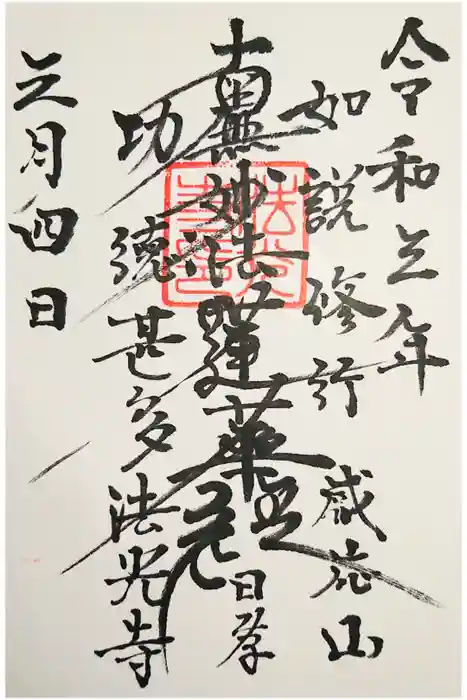 令和五年
如説修行
感応山
南無妙法蓮華経
功徳甚多
法光寺
五月四日